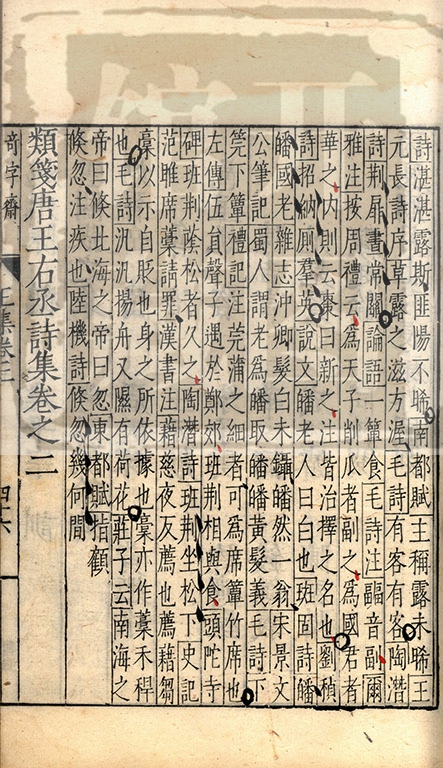 詩湛湛露斯匪陽不晞南都賦主稱露未晞王
元長詩序草露之滋方渥毛詩有客有客陶潛
詩荆扉晝常關論語一簞食毛詩注副音副爾
雅注按周禮云為天子削瓜者副之為國君者
華之内則云棗曰新之注皆治擇之名也劉楨
詩招納厠羣英說文皤老人白也班固詩皤
皤國老雜志沖卿髮白未鑷皤然一翁宋景文
公筆記蜀人謂老為皤取皤皤黃髮義毛詩下
莞下簟禮記注莞蒲之細者可為席簟竹席也
左傳伍舉聲子遇於鄭郊班荆相與食頭陀寺
碑班荆蔭松者久之陶潛詩班荆坐松下史記
范睢席藁請罪漢書注藉慈夜反薦也薦藉芻
藁以示自貶也身之所依據也藁亦作藳禾稈
也毛詩汎汎揚舟又隰有荷花莊子云南海之
帝曰倏北海之帝曰忽東都賦指顧
倏忽注疾也陸機詩倏忽幾何間
類箋唐王右丞詩集卷之二
奇字齋
四六